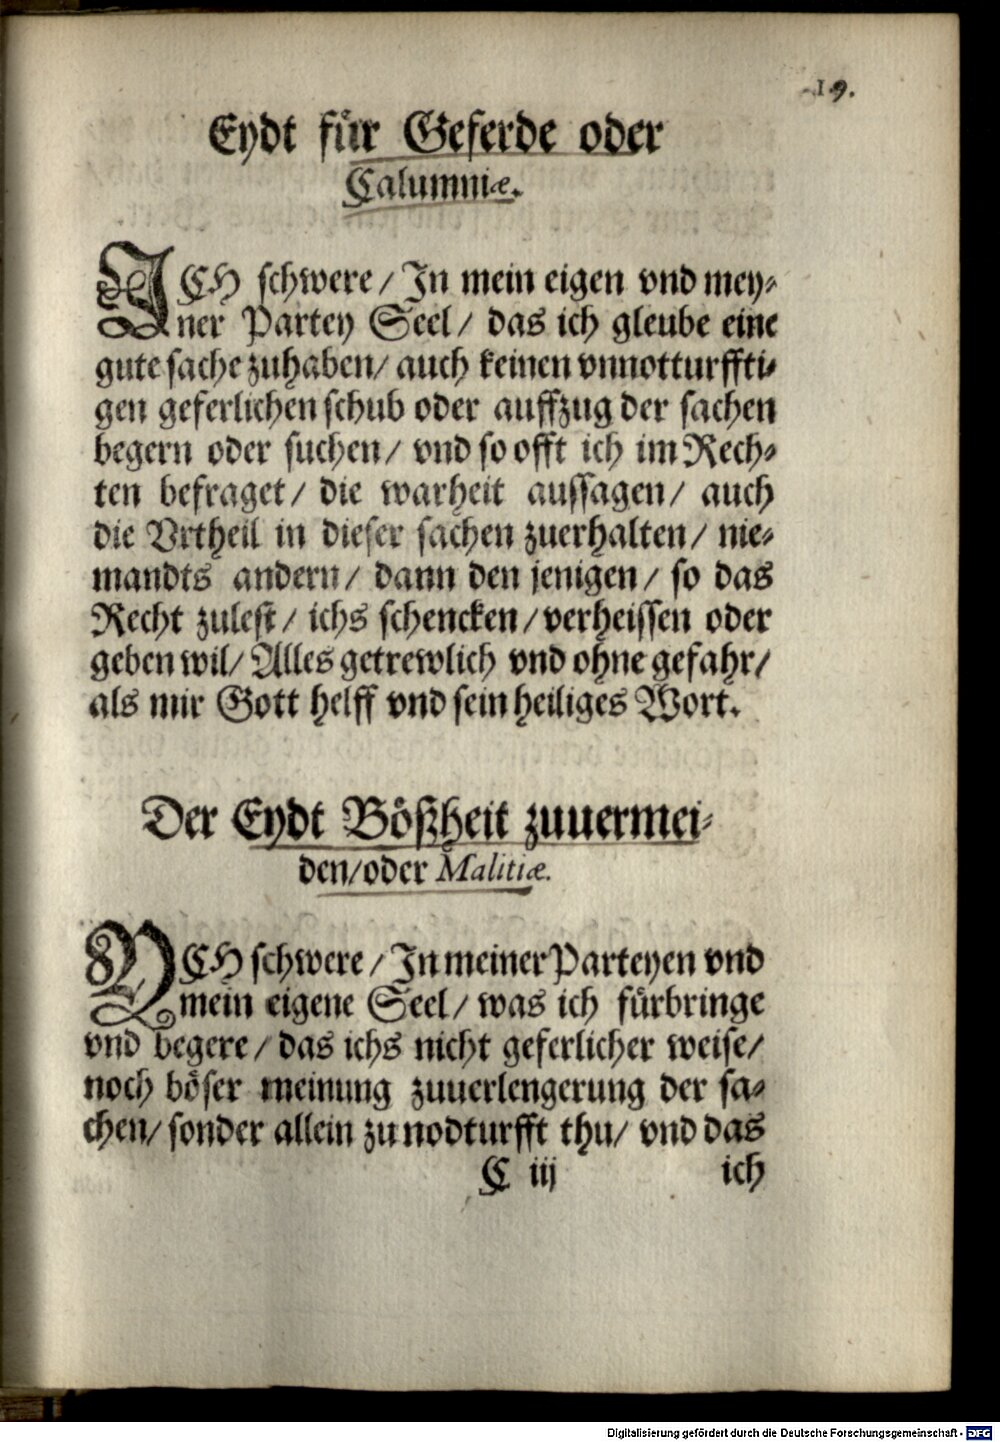 19.
Eydt für Geferde oder
Calumniæ.
ICH schwere / In mein eigen vnd mey-
ner Partey Seel / das ich gleube eine
gute sache zuhaben / auch keinen vnnotturffti-
gen geferlichen schub oder auffzug der sachen
begern oder suchen / vnd so offt ich im Rech-
ten befraget / die warheit aussagen / auch
die Vrtheil in dieser sachen zuerhalten / nie-
mandts andern / dann den jenigen / so das
Recht zulest / ichs schencken / verheissen oder
geben wil / Alles getrewlich vnd ohne gefahr /
als mir Gott helff vnd sein heiliges Wort.
Der Eydt Bößheit zuuermei-
den / oder Malitiæ.
ICH schwere / In meiner Parteyen vnd
mein eigene Seel / was ich fürbringe
vnd begere / das ichs nicht geferlicher weise /
noch böser meinung zuuerlengerung der sa-
chen / sonder allein zu nodturfft thu / vnd das
C iij ich
Digitalisierung gefördert durch die Deutsche Forschungsgemeinschaft - DFG